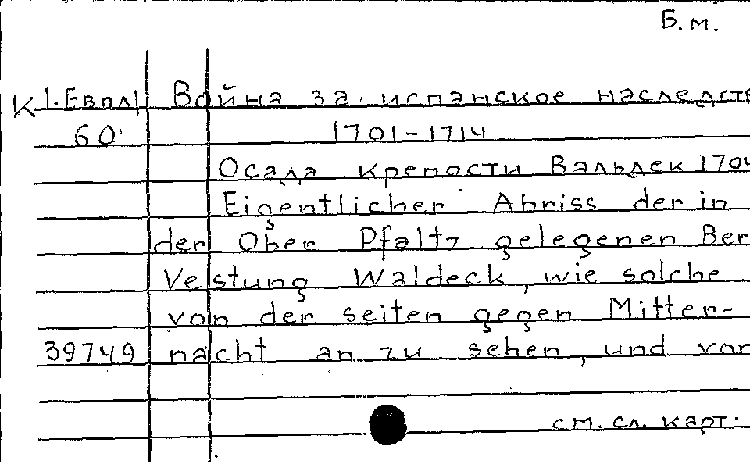 Б.м.
К 1.Евпл Война за испанское наследств
60 1701-1714
Осада крепости Вальдек 1704
Eigentlicher Abriss der in
der Ober Pfaltz gelegenen Ber
Vestung Waldeck, wie solche
von der seiten gegen Mitter-
39749 nacht an zu sehen, und von
см. сл. карт.